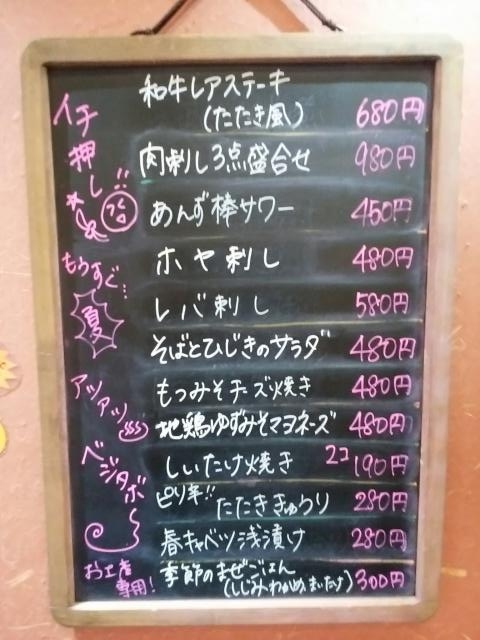 イチ押し!!
和牛レアステーキ
(たたき風) 680円
肉刺し3点盛合せ 980円
あんず棒サワー 450円
ホヤ刺し 480円
もうすぐ…
夏
レバ刺し 580円
そばとひじきのサラダ 480円
アツアツ
もつみそチーズ焼き 480円
地鶏ゆずみそマヨネーズ 480円
ベジタボ〜
しいたけ焼き 2コ190円
ピリ辛!! たたききゅうり 280円
春キャベツ浅漬け 280円
お土産
専用!
季節のまぜごはん
(しじみ、わかめ、まいたけ) 300円